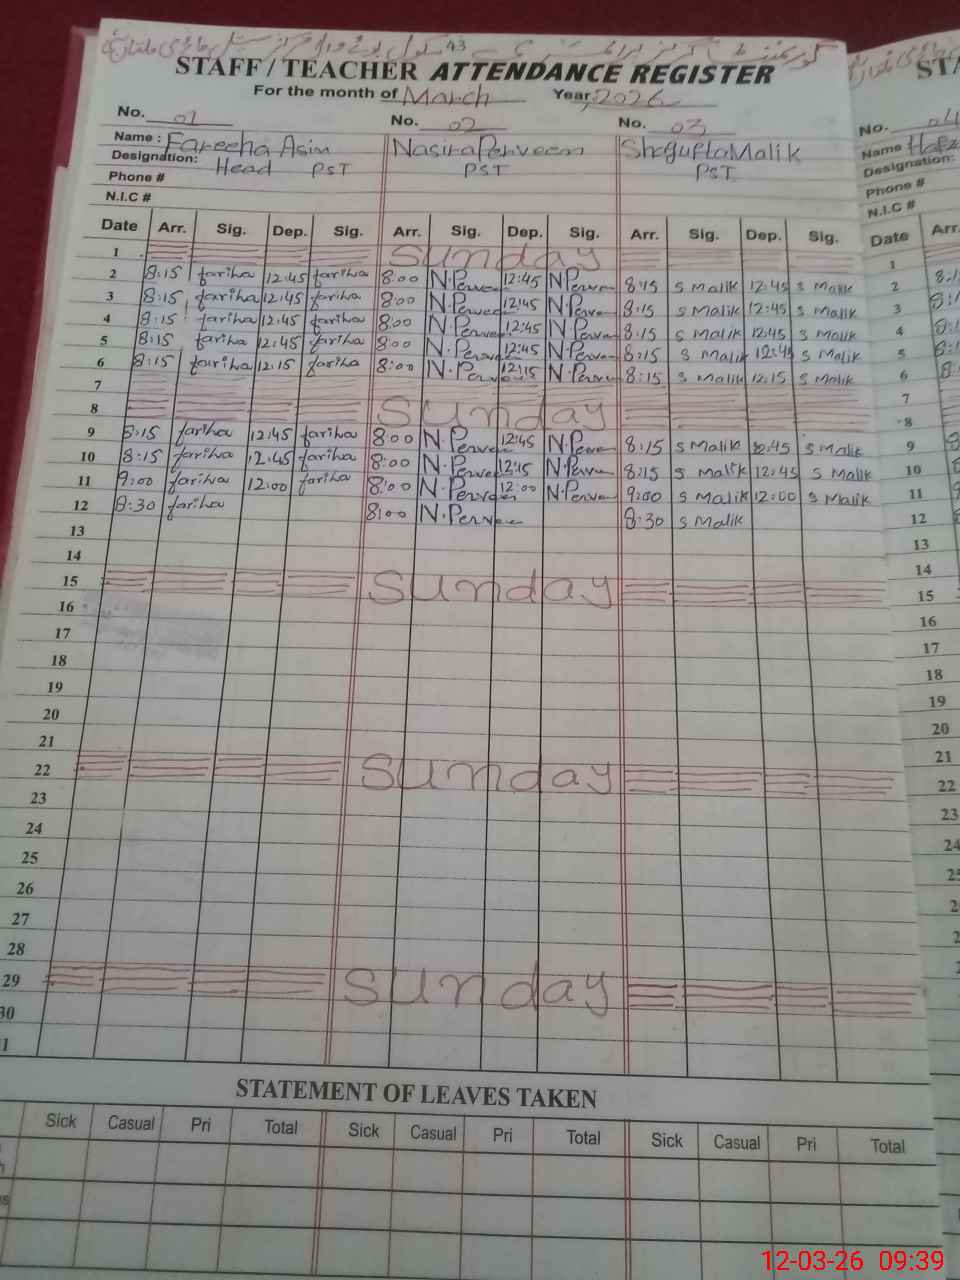 43
STAFF / TEACHER ATTENDANCE REGISTER
For the month of March Year, 2026
No. 01 No. 02 No. 03
Name : Fareeha Asim Nasira Perveen Shagufta Malik
Designation: Head PST PST PST
Phone #
N.I.C #
Date Arr. Sig. Dep. Sig. Arr. Sig. Dep. Sig. Arr. Sig. Dep. Sig.
1 Sunday
2 8:15 fariha 12:45 fariha 8:00 N.Perveen 12:45 N.Perveen 8:15 S Malik 12:45 S Malik
3 8:15 fariha 12:45 fariha 8:00 N.Perveen 12:45 N.Perveen 8:15 S Malik 12:45 S Malik
4 8:15 fariha 12:45 fariha 8:00 N.Perveen 12:45 N.Perveen 8:15 S Malik 12:45 S Malik
5 8:15 fariha 12:45 fariha 8:00 N.Perveen 12:45 N.Perveen 8:15 S Malik 12:45 S Malik
6 8:15 fariha 12:15 fariha 8:00 N.Perveen 12:15 N.Perveen 8:15 S Malik 12:15 S Malik
7
8 Sunday
9 8:15 fariha 12:45 fariha 8:00 N.Perveen 12:45 N.Perveen 8:15 S Malik 12:45 S Malik
10 8:15 fariha 12:45 fariha 8:00 N.Perveen 12:45 N.Perveen 8:15 S Malik 12:45 S Malik
11 9:00 fariha 12:00 fariha 8:00 N.Perveen 12:00 N.Perveen 9:00 S Malik 12:00 S Malik
12 8:30 fariha 8:00 N.Perveen 8:30 S Malik
13
14
15 Sunday
16
17
18
19
20
21
22 Sunday
23
24
25
26
27
28
29 Sunday
30
1
STATEMENT OF LEAVES TAKEN
Sick Casual Pri Total Sick Casual Pri Total Sick Casual Pri Total
STA
No. 04
Name
Designation:
Phone #
N.I.C #
Date Arr.
1
2
3
4
5
6
7
8
9
10
11
12
13
14
15
16
17
18
19
20
21
22
23
24
12-03-26 09:39